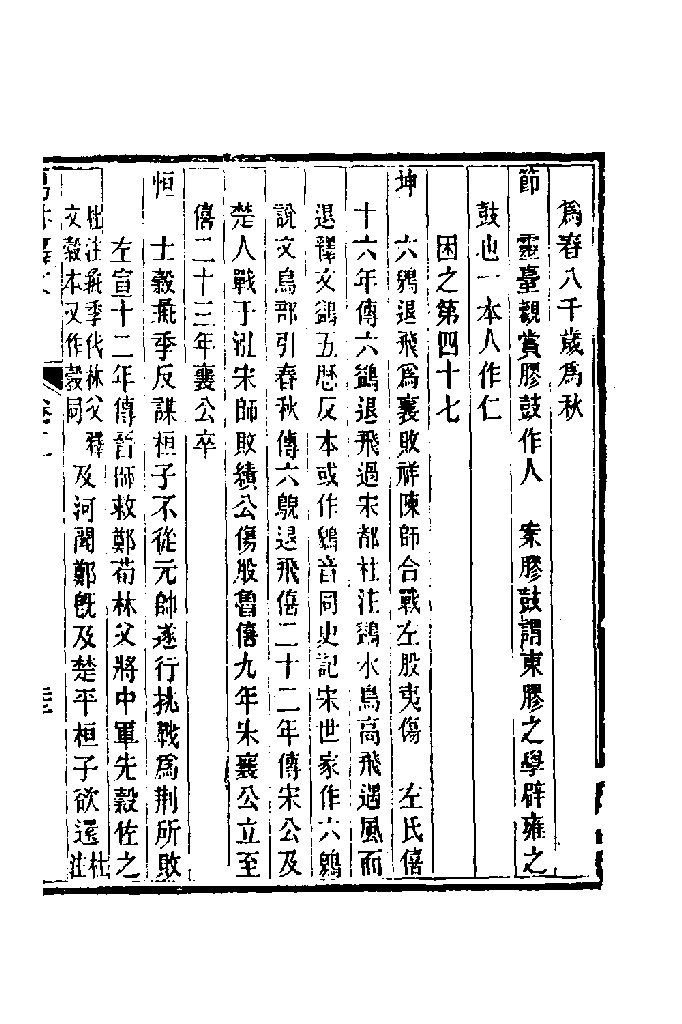 為春八千歲為秋
節　靈臺觀賞膠鼓作人　案膠鼓謂東膠之學辟雍之
鼓也一本人作仁
困之第四十七
坤　六鶂退飛為襄敗祥陳師合戰左股夷傷　左氏僖
十六年傳六鷁退飛過宋都杜注鷁水鳥高飛遇風而
退釋文鷁五歷反本或作鶂音同史記宋世家作六鶂
說文鳥部引春秋傳六鶃退飛僖二十二年傳宋公及
楚人戰于泓宋師敗績公傷股魯僖九年宋襄公立至
僖二十三年襄公卒
恒　士縠燕季反謀桓子不從元帥遂行挑戰為荆所敗
左宣十二年傳晉師救鄭荀林父將中軍先縠佐之
杜注彘季代林父　釋
文縠本又作㲄同
及河聞鄭旣及楚平桓子欲還
杜
注
易林釋文　卷二